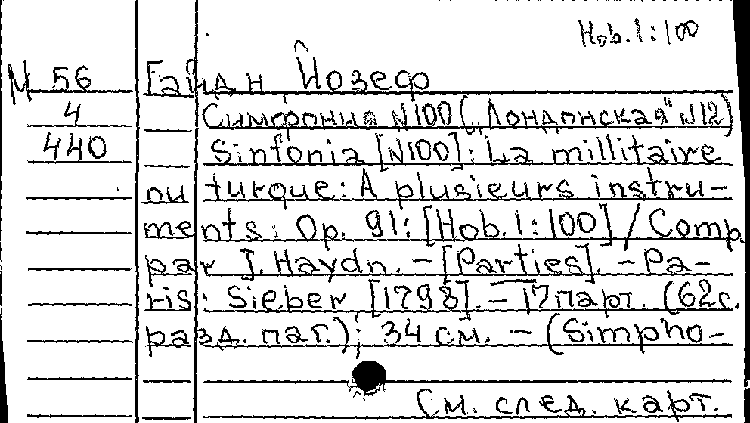 Hob. I:100
М 56 Гайдн, Йозеф
4 Симфония N100 („Лондонская" N12)
440 Sinfonia [N100]: La millitaire
ou turque: A plusieurs instru-
ments: Op. 91: [Hob. I:100] / Comp.
par J. Haydn. - [Parties]. - Pa-
ris: Sieber [1798]. - 17 парт. (62 с.
разд. паг.); 34 см. - (Simpho-
См. след. карт.